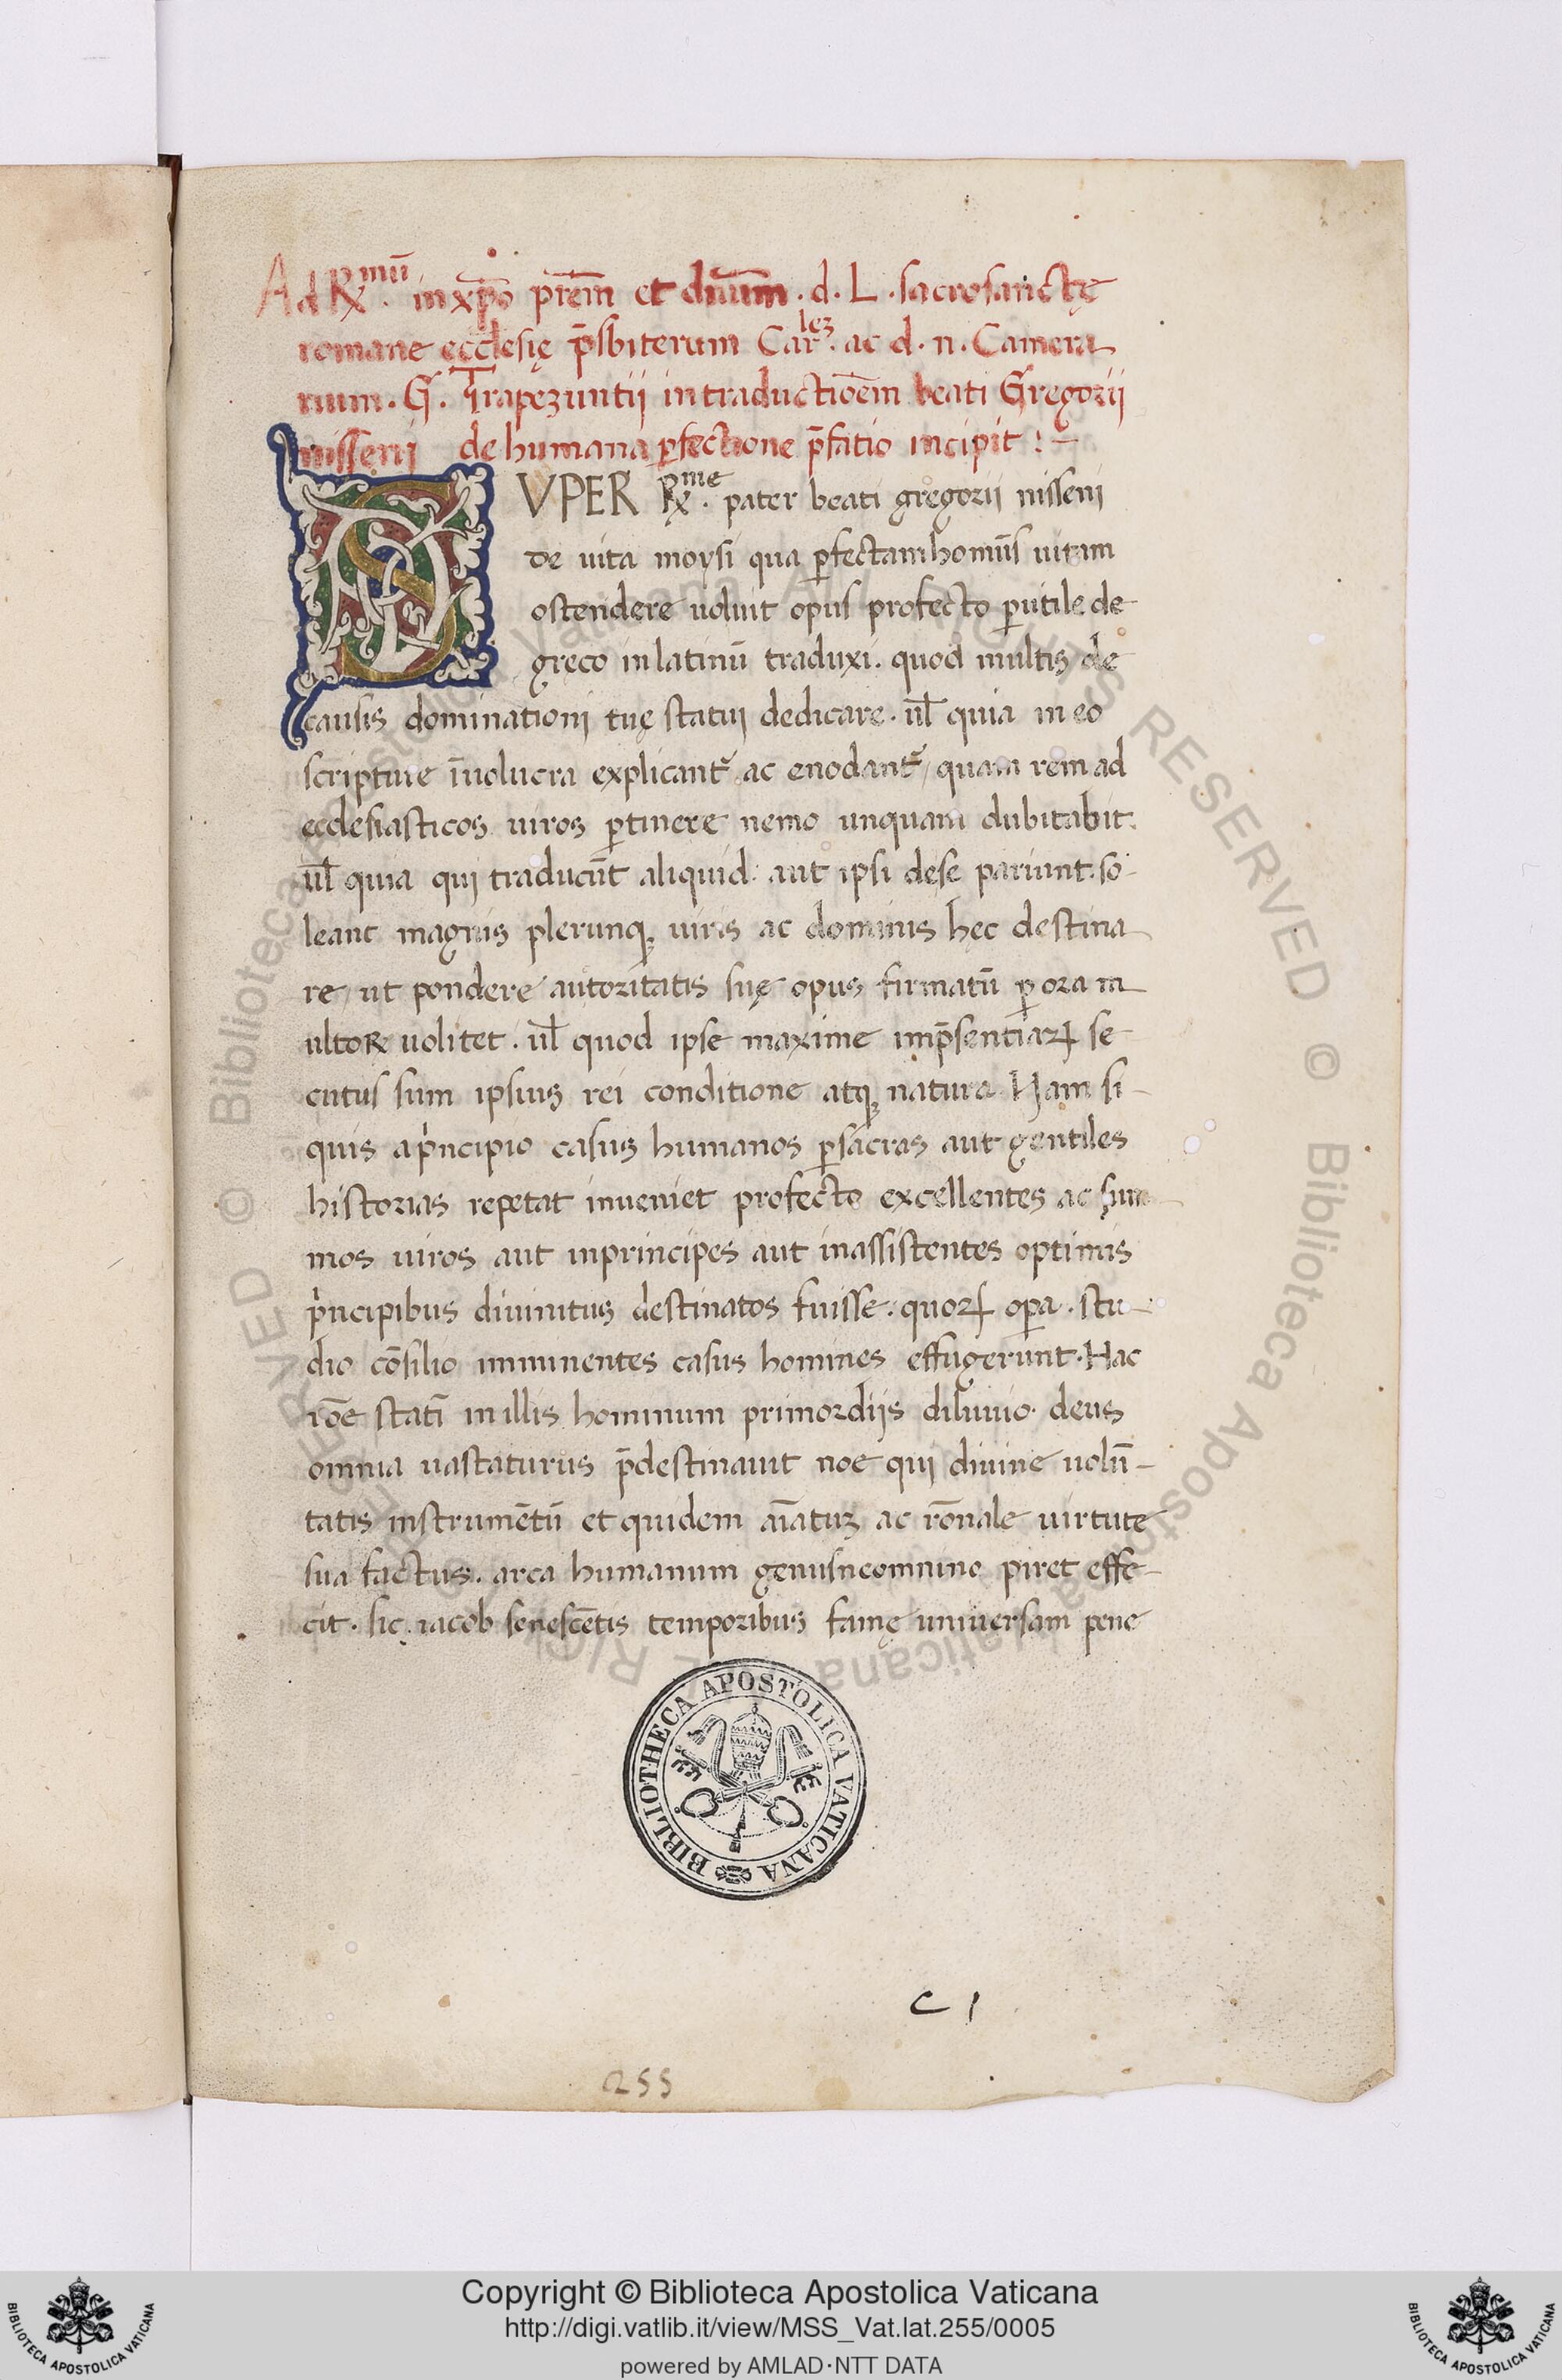 Ad Rx.mū in xp̄o pr̄em et dnūm . d . L . sacrosanctę
romane ecclesię p̄sbiterum Car.lez ac d . n . Camera
rium . G . Trapezuntii in traductiōem beati Gregorii
nisseni de humana ꝑfectione p̄fatio incipit :–
SVPER Rx.me pater beati gregorii nisseni
de uita moysi qua ꝑfectam homīs uitam
ostendere uoluit opus profecto ꝑutile de
greco in latinū traduxi . quod multis de
causis dominationi tuę statui dedicare . ul̄ quia in eo
scripture īuolucra explicantᷣ ac enodantᷣ / quam rem ad
ecclesiasticos uiros ꝑtinere nemo unquam dubitabit .
ul̄ quia qui traducūt aliquid aut ipsi de se pariunt . so-
leant magnis plerunqꝫ uiris ac dominis hec destina
re / ut pondere autoritatis suę opus firmatū ꝑ ora m
ultoꝝ uolitet . ul̄ quod ipse maxime imp̄sentiaꝝ se
cutus sum ipsius rei conditione atqꝫ natura Nam si-
quis a pͥncipio casus humanos ꝑ sacras aut gentiles
historias repetat inueniet profecto excellentes ac sum
mos uiros aut in principes aut in assistentes optimis
pͥncipibus diuinitus destinatos fuisse . quoꝝ oꝑa . stu-
dio cōsilio imminentes casus homines effugerunt . Hac
rōe statī in illis hominum primordijs diluuio deus
omnia uastaturus p̄destinauit noe qui diuine uolū-
tatis instrumētū et quidem aīatuꝫ ac rōnale uirtute
sua factus . arca humanum genus ne omnino piret effe-
cit . sic iacob senescētis temporibus famę uniuersam pene
BIBLIOTHECA APOSTOLICA VATICANA
C 1
255
Copyright © Biblioteca Apostolica Vaticana
http://digi.vatlib.it/view/MSS_Vat.lat.255/0005
powered by AMLAD·NTT DATA
BIBLIOTECA APOSTOLICA VATICANA
BIBLIOTECA APOSTOLICA VATICANA